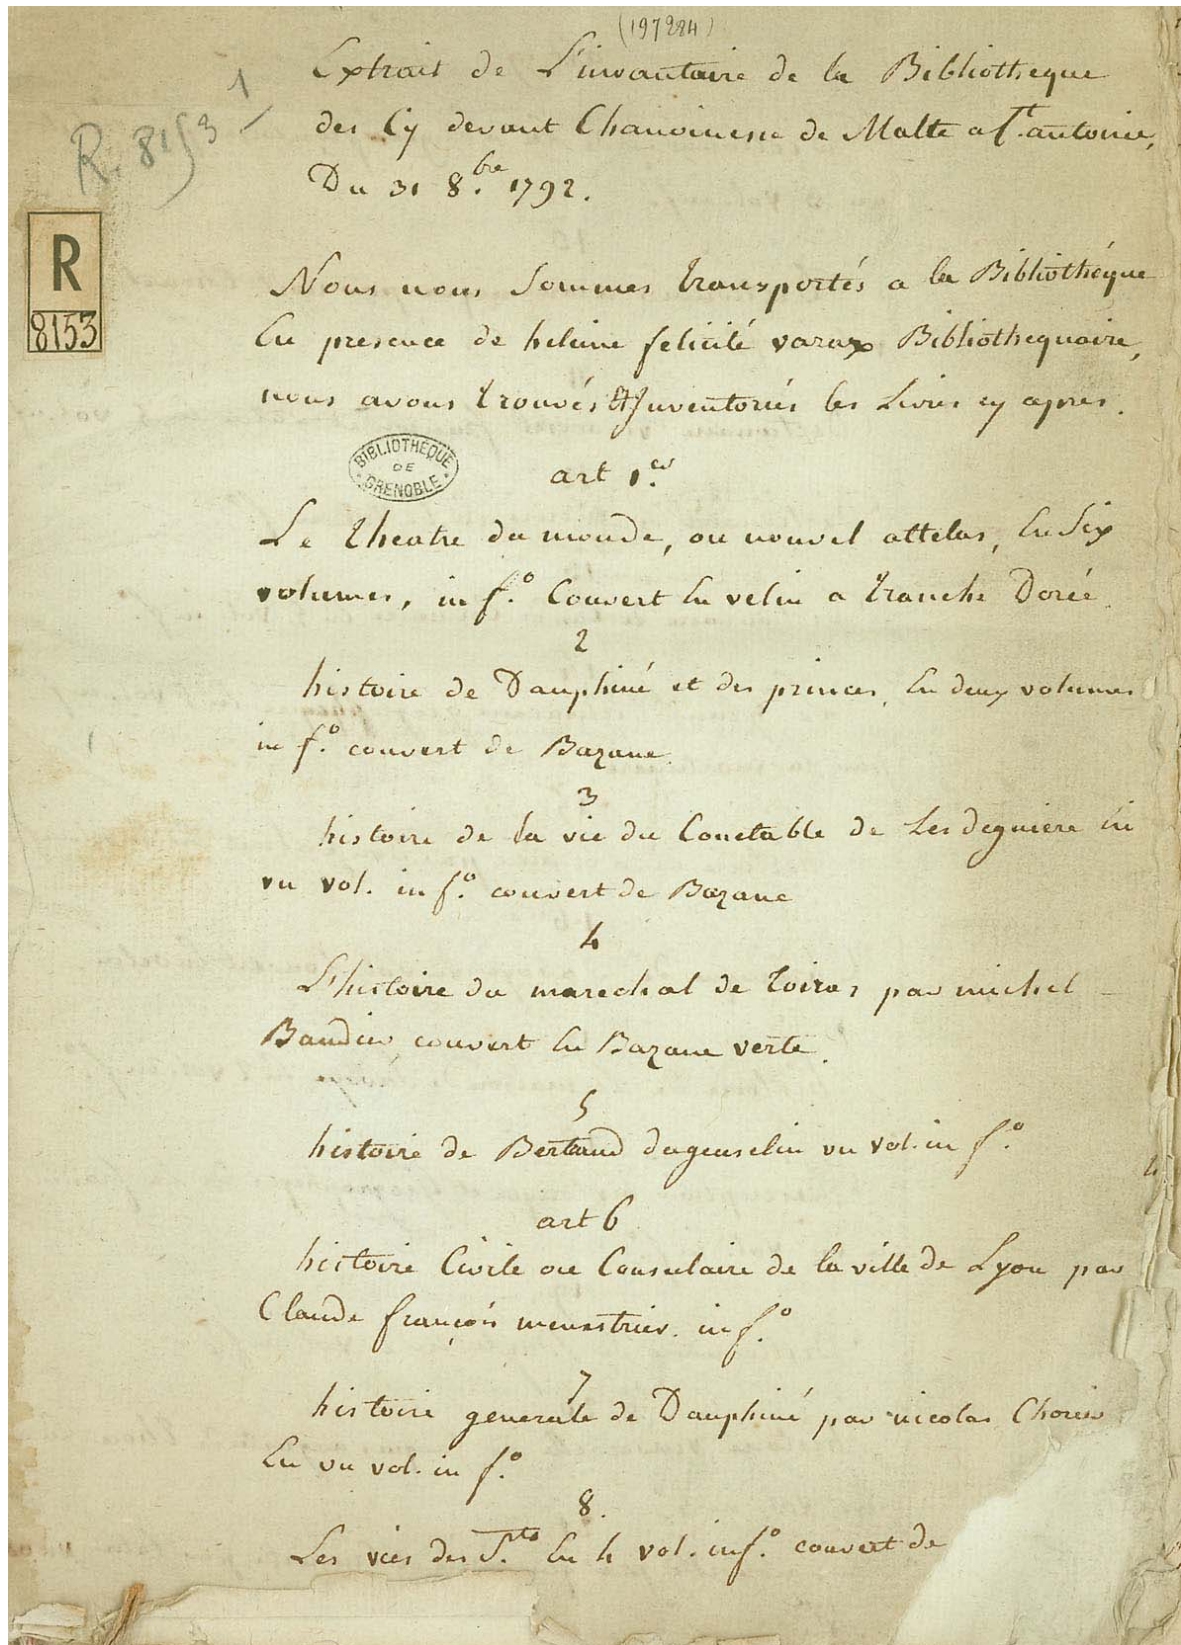 (197284)
Extrait de L'invantaire de la Bibliotheque
des Cy devant Chanoinesse de Malte a St. antoine,
Du 31 8.bre 1792.
R. 8153 1
R
8153
Nous nous sommes transportés a la Bibliothéque
En presence de heleine felicité varax Bibliothequaire,
nous avons trouvés & Inventoriés les Livres cy apres.
BIBLIOTHÈQUE
DE
GRENOBLE
art 1.er
Le theatre du monde, ou nouvel attelas, En Six
volumes, in f.o Couvert En velin a tranche Dorée
2
histoire de Dauphiné et des princes, En deux volumes
in f.o couvert de Bazane.
3
histoire de la vie du Conetable de Lesdeguiere En
un vol. in f.o couvert de Bazane
4
L'histoire du marechal de Toiras par michel
Baudier, couvert En Bazane verte.
5
histoire de Bertrand duguesclin un vol. in f.o
art 6
histoire Civile ou Consulaire de la ville de Lyon par
Claude françois menestrier. in f.o
7
histoire generale de Dauphiné par nicolas Chorier
En un vol. in f.o
8.
Les vies des S.ts En 4 vol. in f.o couvert de